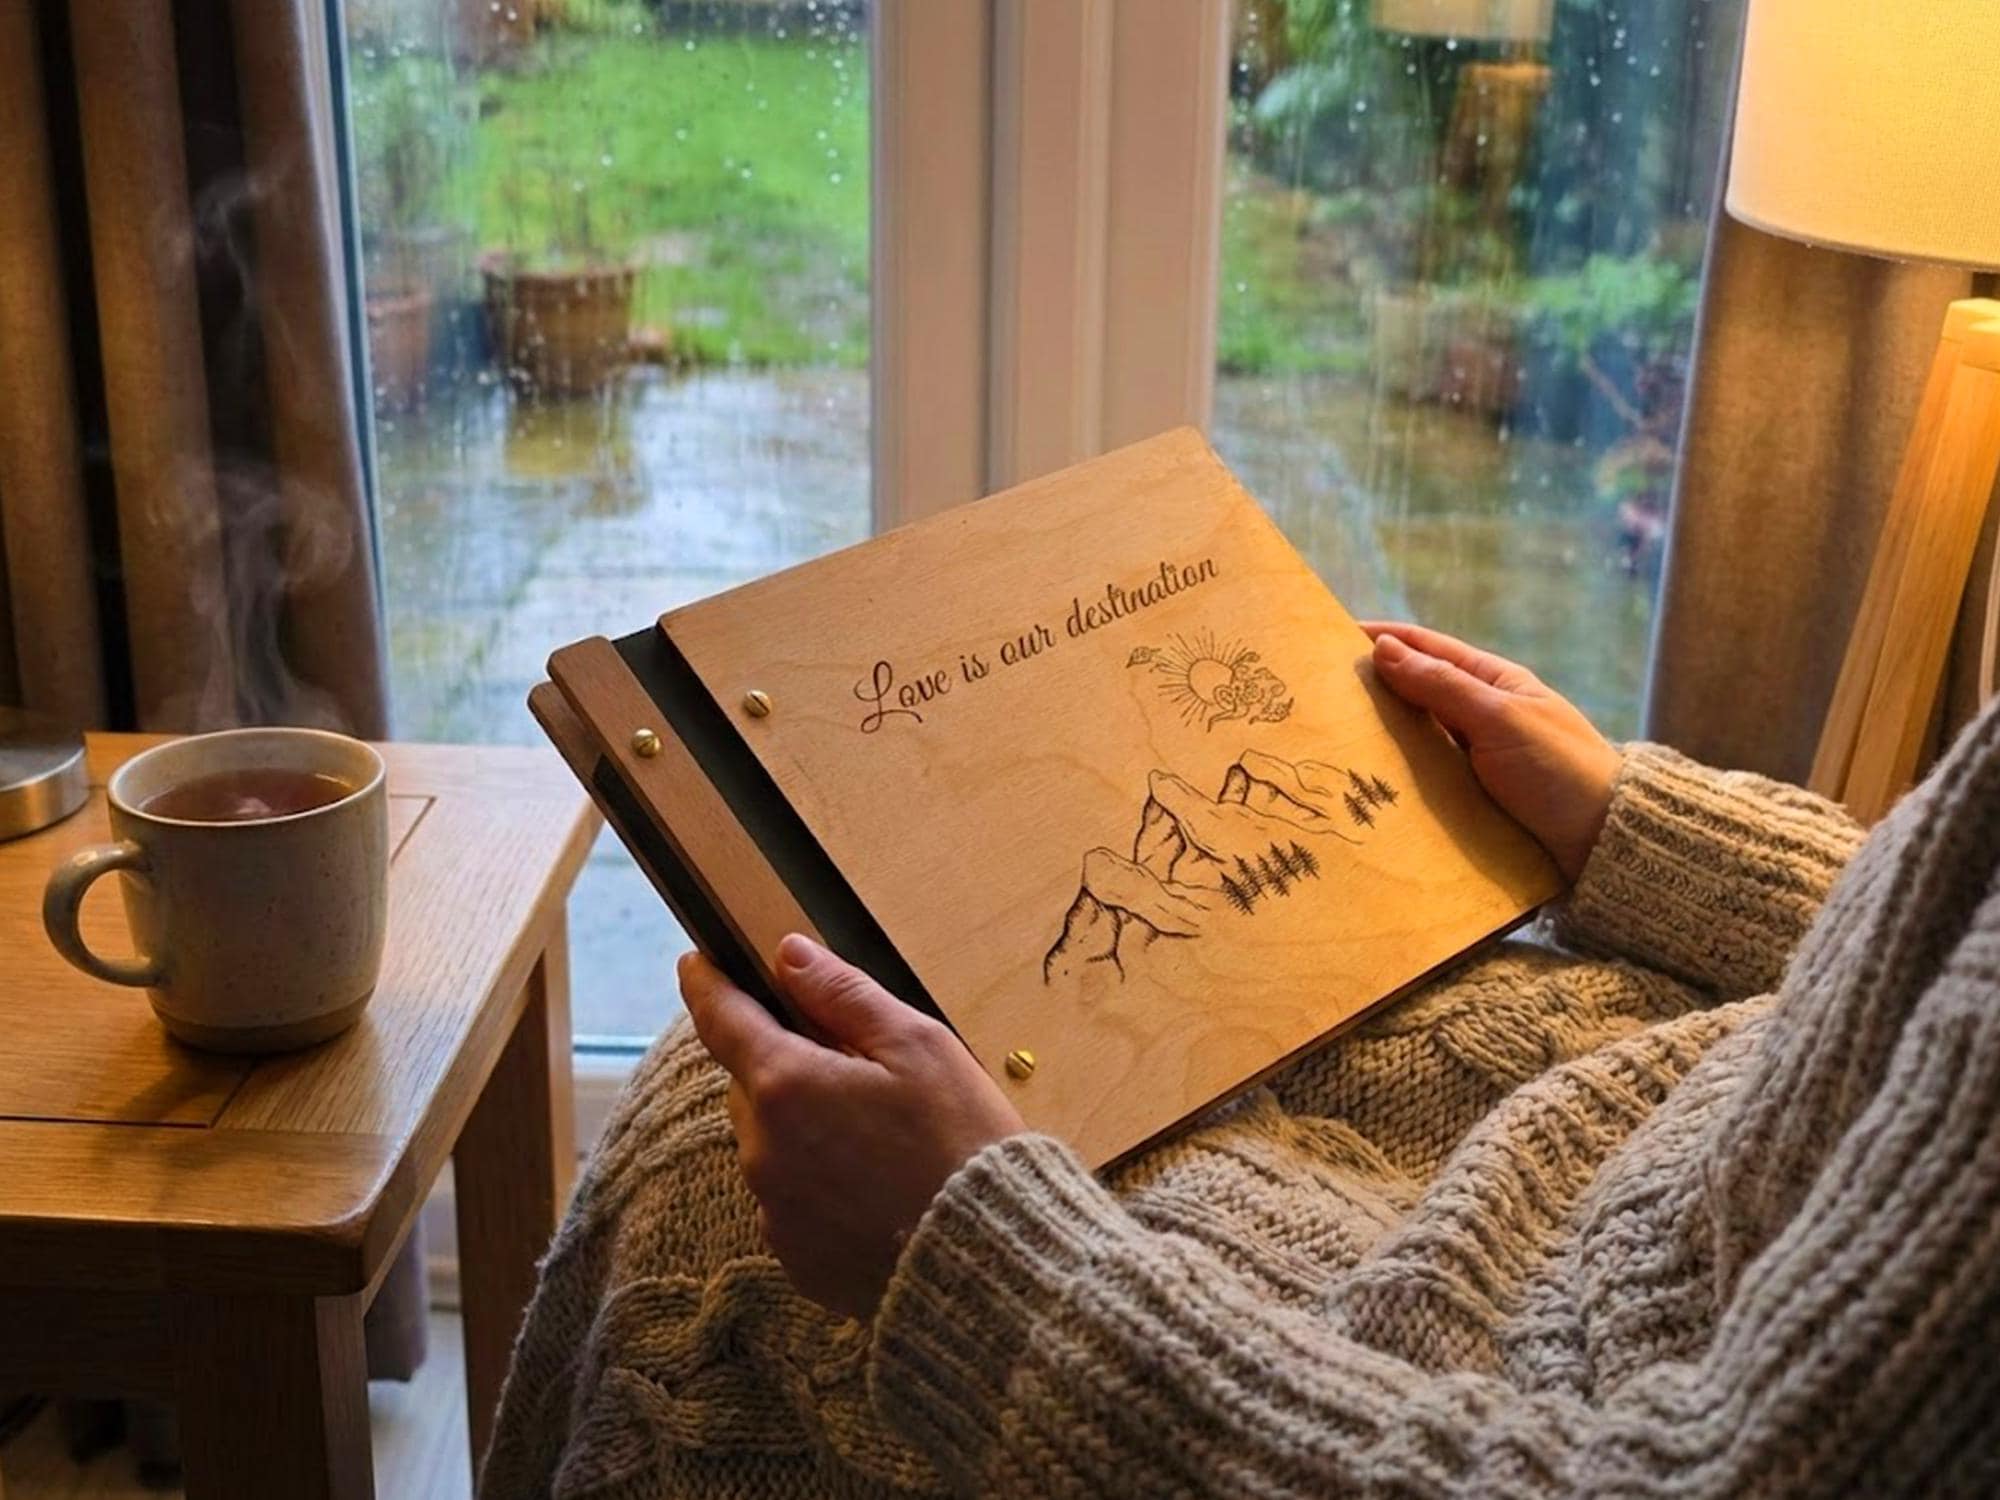 Love is our destination